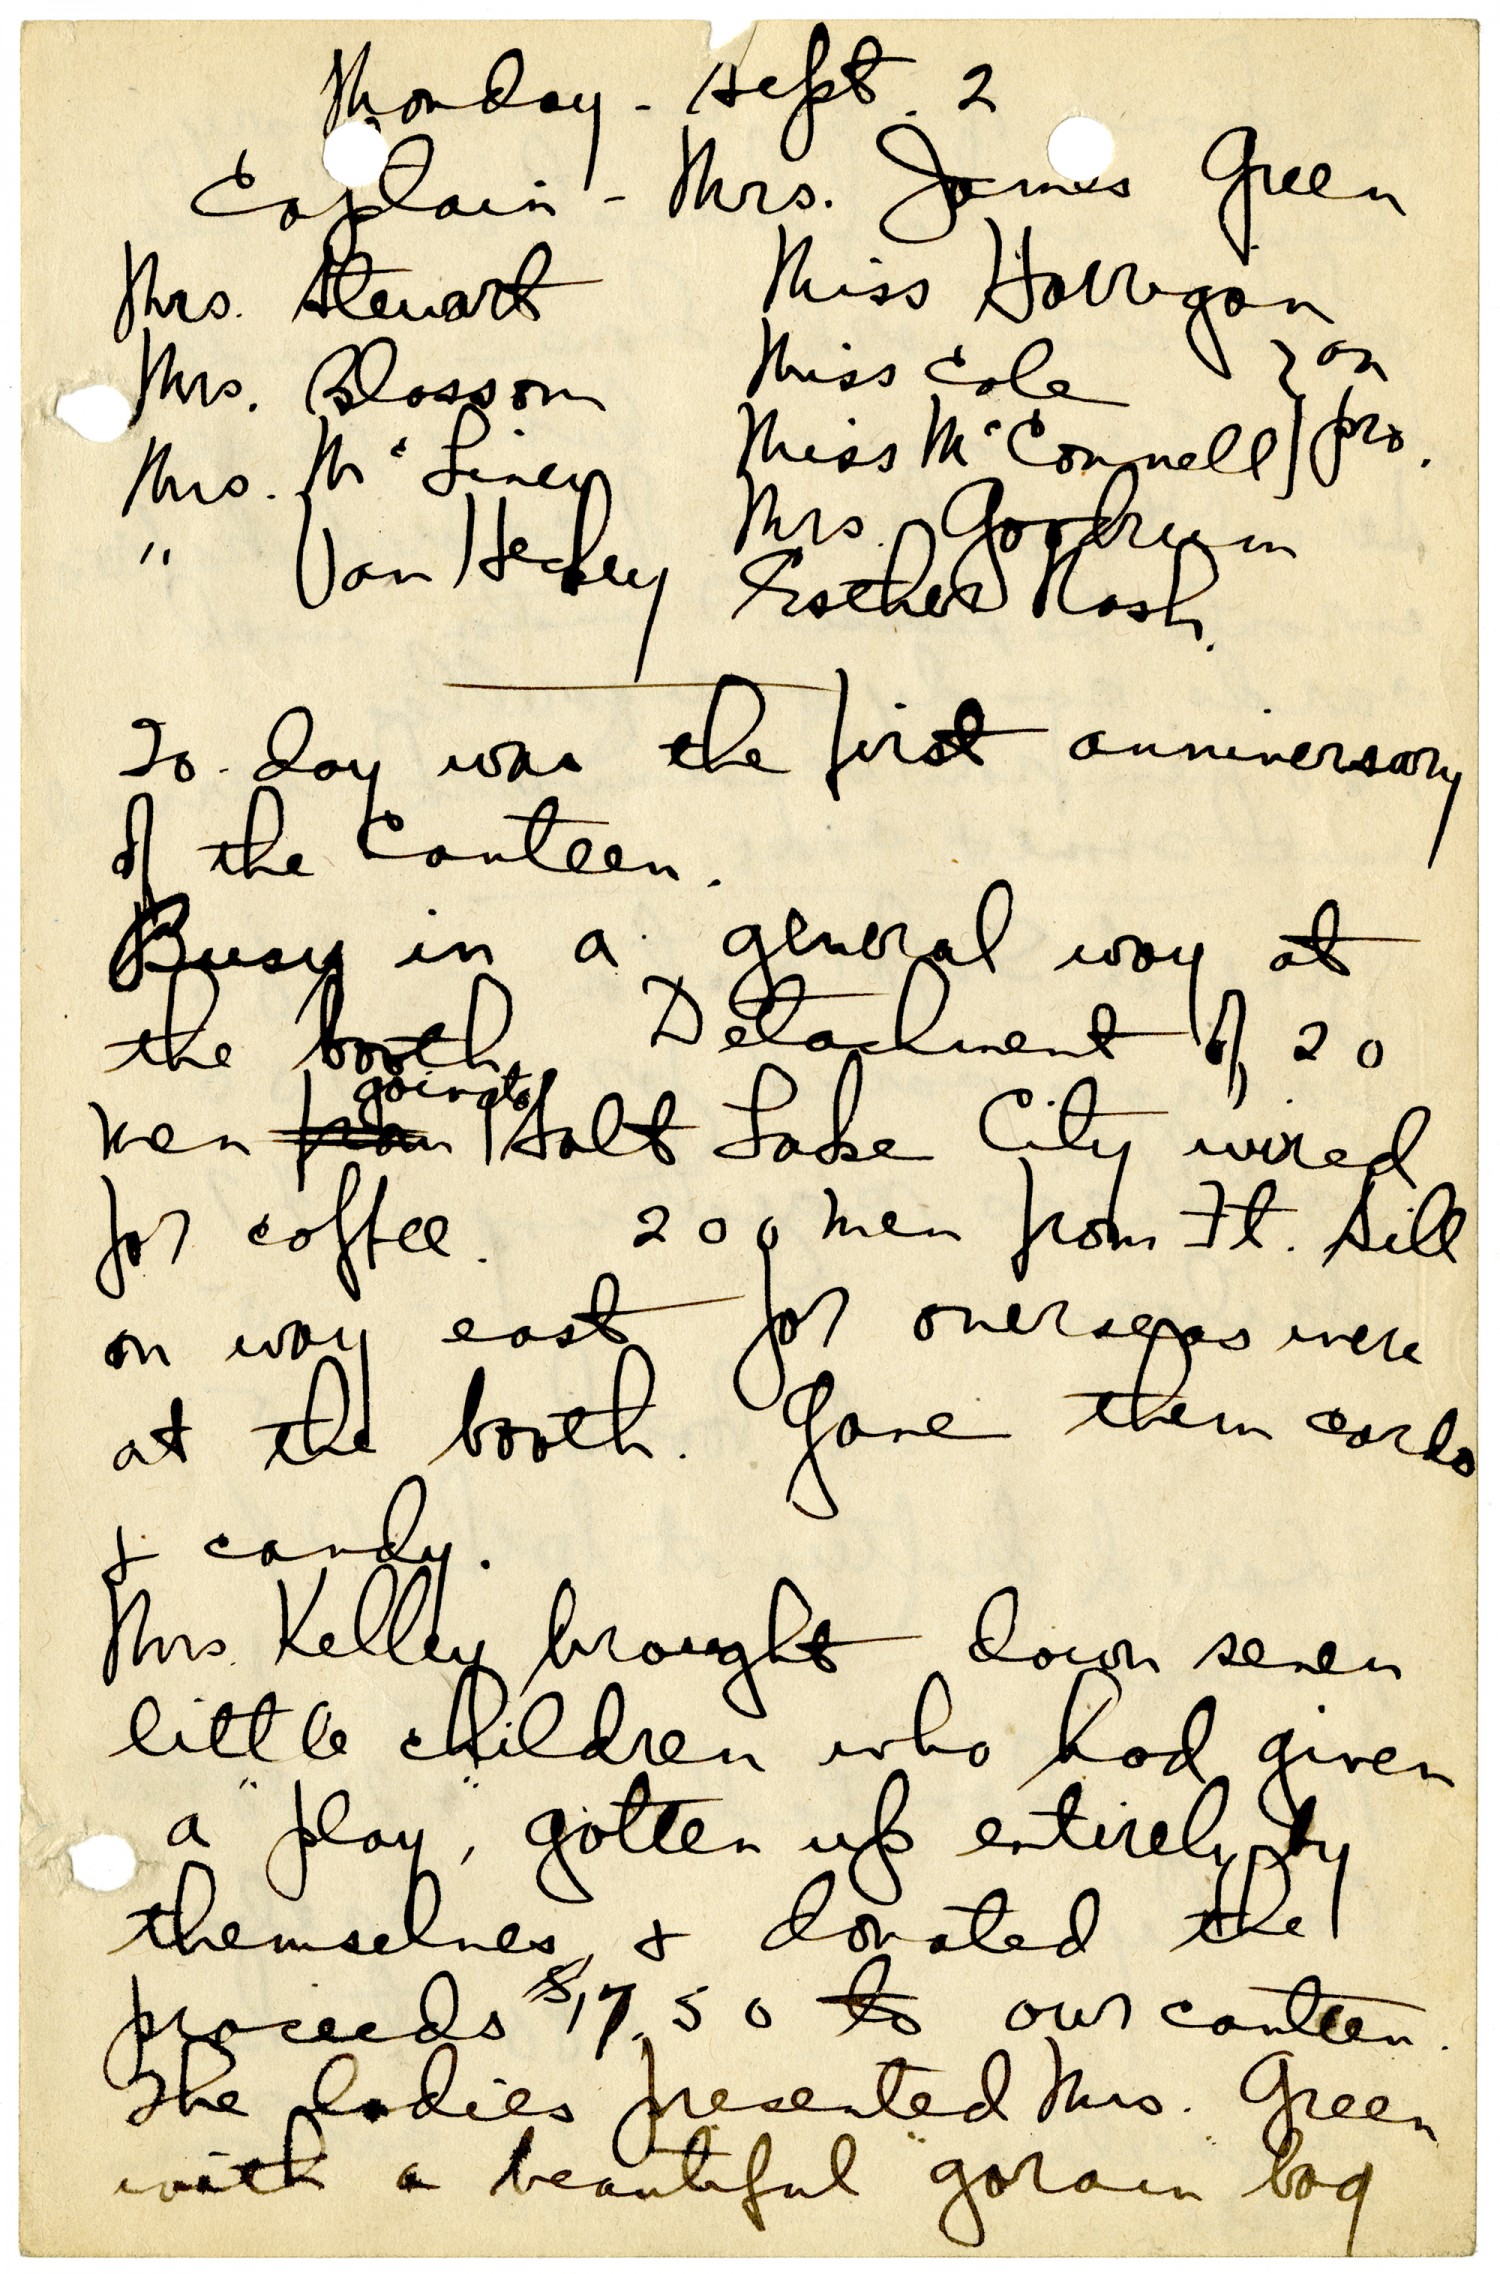 Monday - Sept. 2
Captain - Mrs. James Green
Mrs. Stewart Miss Horrigan
Mrs. Blossom Miss Cole } on
Mrs. McLiney Miss McConnell } pro.
" Van Hecke Mrs. Goodrum
Esther Nash.
To-day was the first anniversary
of the Canteen.
Busy in a general way at
the booth. Detachment of 20
going to
men from Salt Lake City wired
for coffee. 200 men from Ft. Sill
on way east for overseas were
at the booth. Gave them cards
& candy.
Mrs. Kelley brought down seven
little children who had given
a "play", gotten up entirely by
themselves, & donated the
proceeds $17.50 to our canteen.
The ladies presented Mrs. Green
with a beautiful "gorain" bag